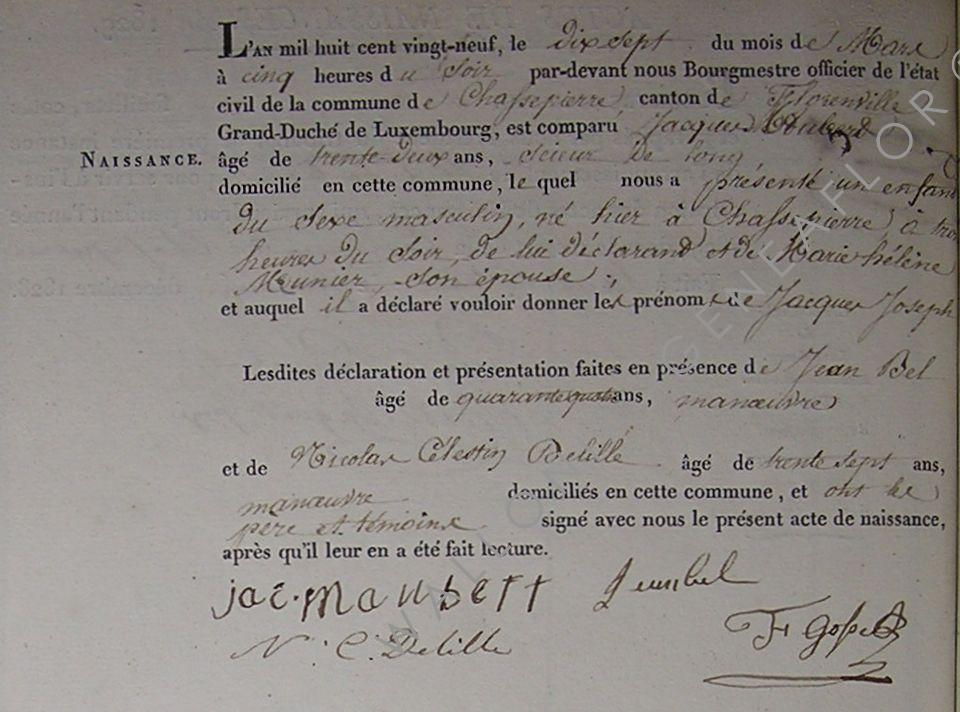 L'AN mil huit cent vingt-neuf, le dix sept du mois de Mars
à cinq heures du Soir par-devant nous Bourgmestre officier de l'état
civil de la commune de Chassepierre canton de Florenville
Grand-Duché de Luxembourg, est comparu Jacques
NAISSANCE. âgé de trente-deux ans, Scieur de long,
domicilié en cette commune, le quel nous a présenté un enfant
du Sexe masculin, né hier à Chassepierre, à trois
heures du Soir, de lui déclarand et de Marie hélène
Meunier, Son épouse,
et auquel il a déclaré vouloir donner les prénoms de Jacques Joseph
Lesdites déclaration et présentation faites en présence de Jean Bel
âgé de quarante quatre ans, manœuvre
et de Nicolas Célestin Delille âgé de trente sept ans,
manœuvre domiciliés en cette commune, et ont les
père et témoins signé avec nous le présent acte de naissance,
après qu'il leur en a été fait lecture.
jac. maubert Jean bel
N. C. Delille
GENEAFLOR